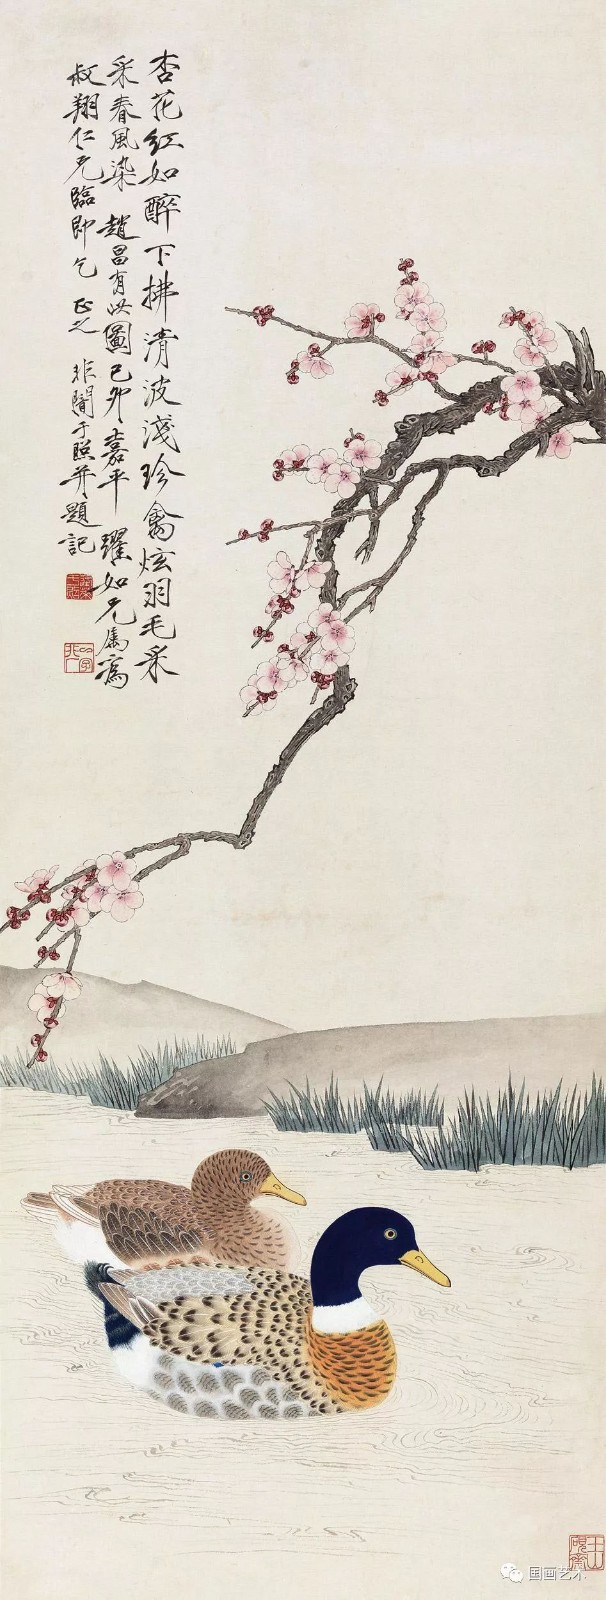 杏花红如醉下拂清波淺珍禽炫羽毛采
采春風染 趙昌有此圖己卯嘉平 耀如兄属寫
叔翔仁兄臨即乞 正之 非闇于照并題記
国画艺术